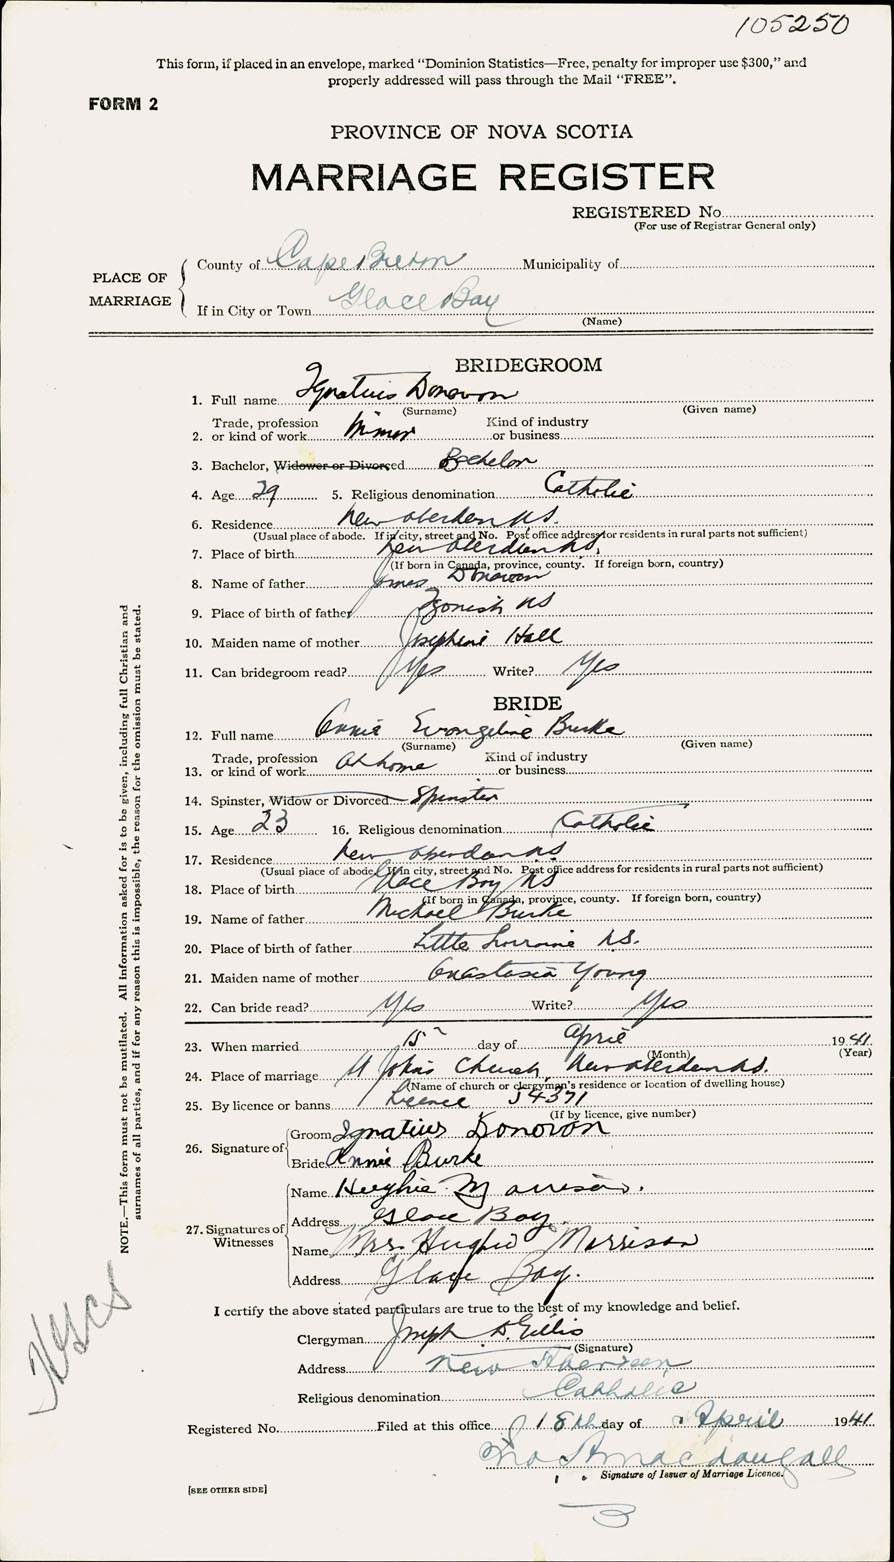 105250
This form, if placed in an envelope, marked “Dominion Statistics—Free, penalty for improper use $300,” and
properly addressed will pass through the Mail “FREE”.
FORM 2
PROVINCE OF NOVA SCOTIA
MARRIAGE REGISTER
REGISTERED No.
(For use of Registrar General only)
PLACE OF MARRIAGE
County of Cape Breton Municipality of
If in City or Town Glace Bay
(Name)
BRIDEGROOM
1. Full name Ignatius Donovan
(Surname) (Given name)
2. Trade, profession or kind of work Miner Kind of industry or business
3. Bachelor, Widower or Divorced Bachelor
4. Age 29 5. Religious denomination Catholic
6. Residence New Aberdeen N.S.
(Usual place of abode. If in city, street and No. Post office address for residents in rural parts not sufficient)
7. Place of birth New Aberdeen N.S.
(If born in Canada, province, county. If foreign born, country)
8. Name of father James Donovan
9. Place of birth of father Ingonish NS
10. Maiden name of mother Josephine Hall
11. Can bridegroom read? Yes Write? Yes
BRIDE
12. Full name Annie Evangeline Burke
(Surname) (Given name)
13. Trade, profession or kind of work At home Kind of industry or business
14. Spinster, Widow or Divorced Spinster
15. Age 23 16. Religious denomination Catholic
17. Residence New Aberdeen NS
(Usual place of abode. If in city, street and No. Post office address for residents in rural parts not sufficient)
18. Place of birth Glace Bay NS
(If born in Canada, province, county. If foreign born, country)
19. Name of father Michael Burke
20. Place of birth of father Little Lorraine N.S.
21. Maiden name of mother Anastasia Young
22. Can bride read? Yes Write? Yes
23. When married 15 day of April 1941
(Month) (Year)
24. Place of marriage St Johns Church, New Aberdeen N.S.
(Name of church or clergyman’s residence or location of dwelling house)
25. By licence or banns Licence J4371
(If by licence, give number)
26. Signature of Groom Ignatius Donovan
Bride Annie Burke
27. Signatures of Witnesses
Name Hughie Morrison.
Address Glace Bay.
Name Mrs. Hughie Morrison
Address Glace Bay.
I certify the above stated particulars are true to the best of my knowledge and belief.
Clergyman Joseph D. Gillis
(Signature)
Address New Aberdeen
Religious denomination Catholic
Registered No. Filed at this office 18th day of April 1941
MacDougall
Signature of Issuer of Marriage Licence.
[SEE OTHER SIDE]
3
NOTE.—This form must not be mutilated. All information asked for is to be given, including full Christian and
surnames of all parties, and if for any reason this is impossible, the reason for the omission must be stated.